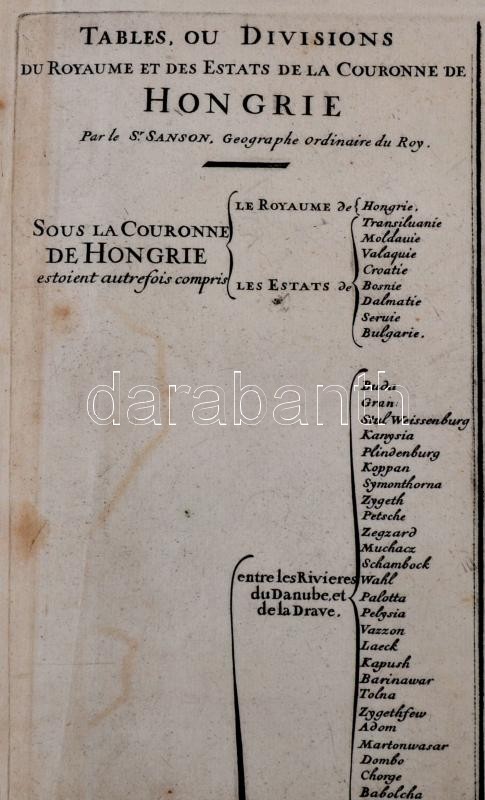 TABLES, OU DIVISIONS
DU ROYAUME ET DES ESTATS DE LA COURONNE DE
HONGRIE
Par le Sr. SANSON, Geographe Ordinaire du Roy.
SOUS LA COURONNE
DE HONGRIE
estoient autrefois compris
LE ROYAUME de
Hongrie.
LES ESTATS de
Transiluanie
Moldauie
Valaquie
Croatie
Bosnie
Dalmatie
Seruie
Bulgarie.
darabanth
entre les Rivieres
du Danube, et
de la Drave.
Buda
Gran
Stul Weissenburg
Kanysia
Plindenburg
Koppan
Symonthorna
Zygeth
Petsche
Zegzard
Muchacz
Schambock
Wahl
Palotta
Pelysia
Vazzon
Laeck
Kapush
Barinawar
Tolna
Zygethfew
Adom
Martonwasar
Dombo
Chorge
Babolcha